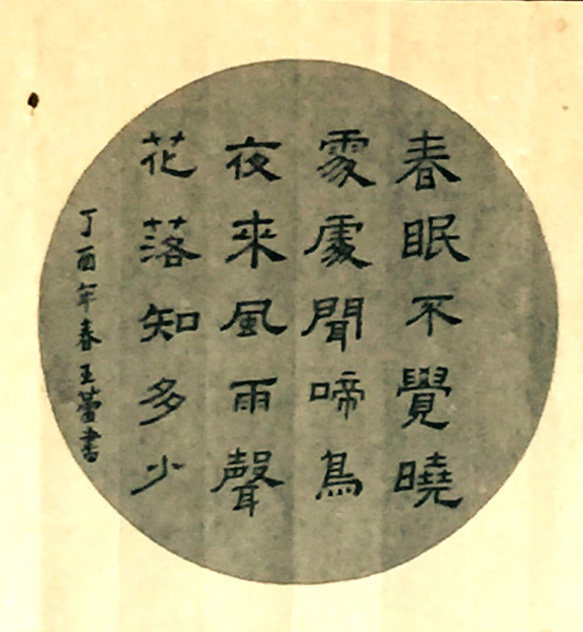 春眠不覺曉
處處聞啼鳥
夜來風雨聲
花落知多少
丁酉年春王蕾書